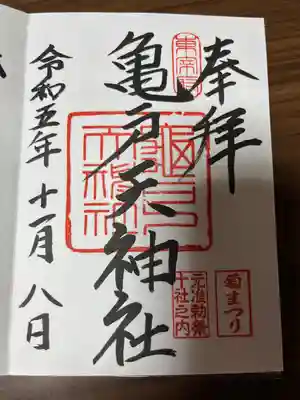 奉拝
東宰府
亀戸天神社
亀戸天神社
菊まつり
元准勅祭
十社之内
令和五年十一月八日